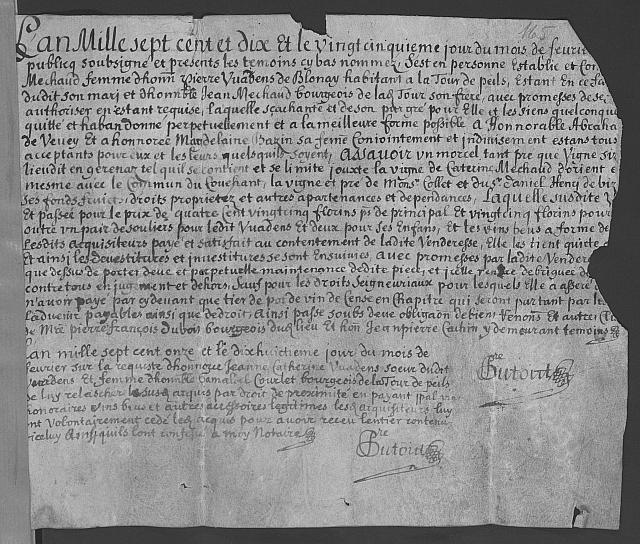 165
Lan Mille sept cent et dix Et le vingt cinquieme jour du mois de feurie
publicq soubsigne et presents les temoins cy bas nommez, Sest en personne Establie et Con
Mechaud femme dhonn Pierre Vuadens de Blonay habitant a la Tour de peils, Estant En ce fa
dudit son mari et dhonnble Jean Mechaud bourgeois de lad Tour son frere, avec promesses de se
authoriser en estant requise, laquelle scachante et de son pur gre pour Elle et les siens quelconqu
quitte et habandonne perpetuellement et a la meilleure forme possible a Honnorable Abraha
de Vevey Et a honnoree Magdelaine Bazin sa feme Conjointement et indivisement estans tous
acceptants pour eux et les leurs quels quils soyent, Assavoir vn morcel tant pre que Vigne siz
lieudit en gerenaz tel quil se contient et se limite jouxte la vigne de Caterine Mechaud dorient e
mesme avec le Commun du Couchant, la vigne et pre de Mons Collet et du Sr Daniel Henj de biz
ses fonds fruicts droits proprietez et autres apartenances et dependances, Laquelle susdite V
Et passee pour le prix de quatre cent vingt cinq florins ps de principal Et vingt cinq florins pour
outre vn pair de souliers pour ledit Vuadens et deux pour ses Enfans, Et les vins beus a forme de
Lesdits acquisiteurs paye et satisfait au contentement de ladite Venderesse, Elle les tient quicte e
Et ainsi les devestitures et investitures se sont Ensuivies, Avec promesses par ladite Vendere
que dessus de porter deue et perpetuelle maintenance dedite piece, et icelle de brigue d
contre tous en jugment et dehors, Sauf pour les droits Seigneuriaux pour lesquels Elle a assere
n'avoir paye par cy devant que tier de pot de vin de Cense en Chapitre qui seront partant par le
Ladvenir payables ainsi que de droit, Ainsi passe soubs deue obligaon de biens Renons et autres Cl
de Mre pierre françois Dubou bourgeois dud lieu et hon Jean pierre Cachin y demeurant temoins
Lan mille sept cent onze et le dixhuictieme jour du mois de
feurier sur la requiste dhonneque Jeanne Catherine Vuadens soeur dudit
Vuadens Et femme dhonnble Gamaliel Courlet bourgeois de la Tour de peils
de luy relascher le susd acquis par droit de proximité en payant
honoraires Vins bus et autres accessoires legitimes lesd acquisiteurs luy
ont Volontairement cede led acquis pour avoir receu lentier contenu
diceluy Ainsi quils lont confesse a moy Notaire
Dutoit
Dutoit